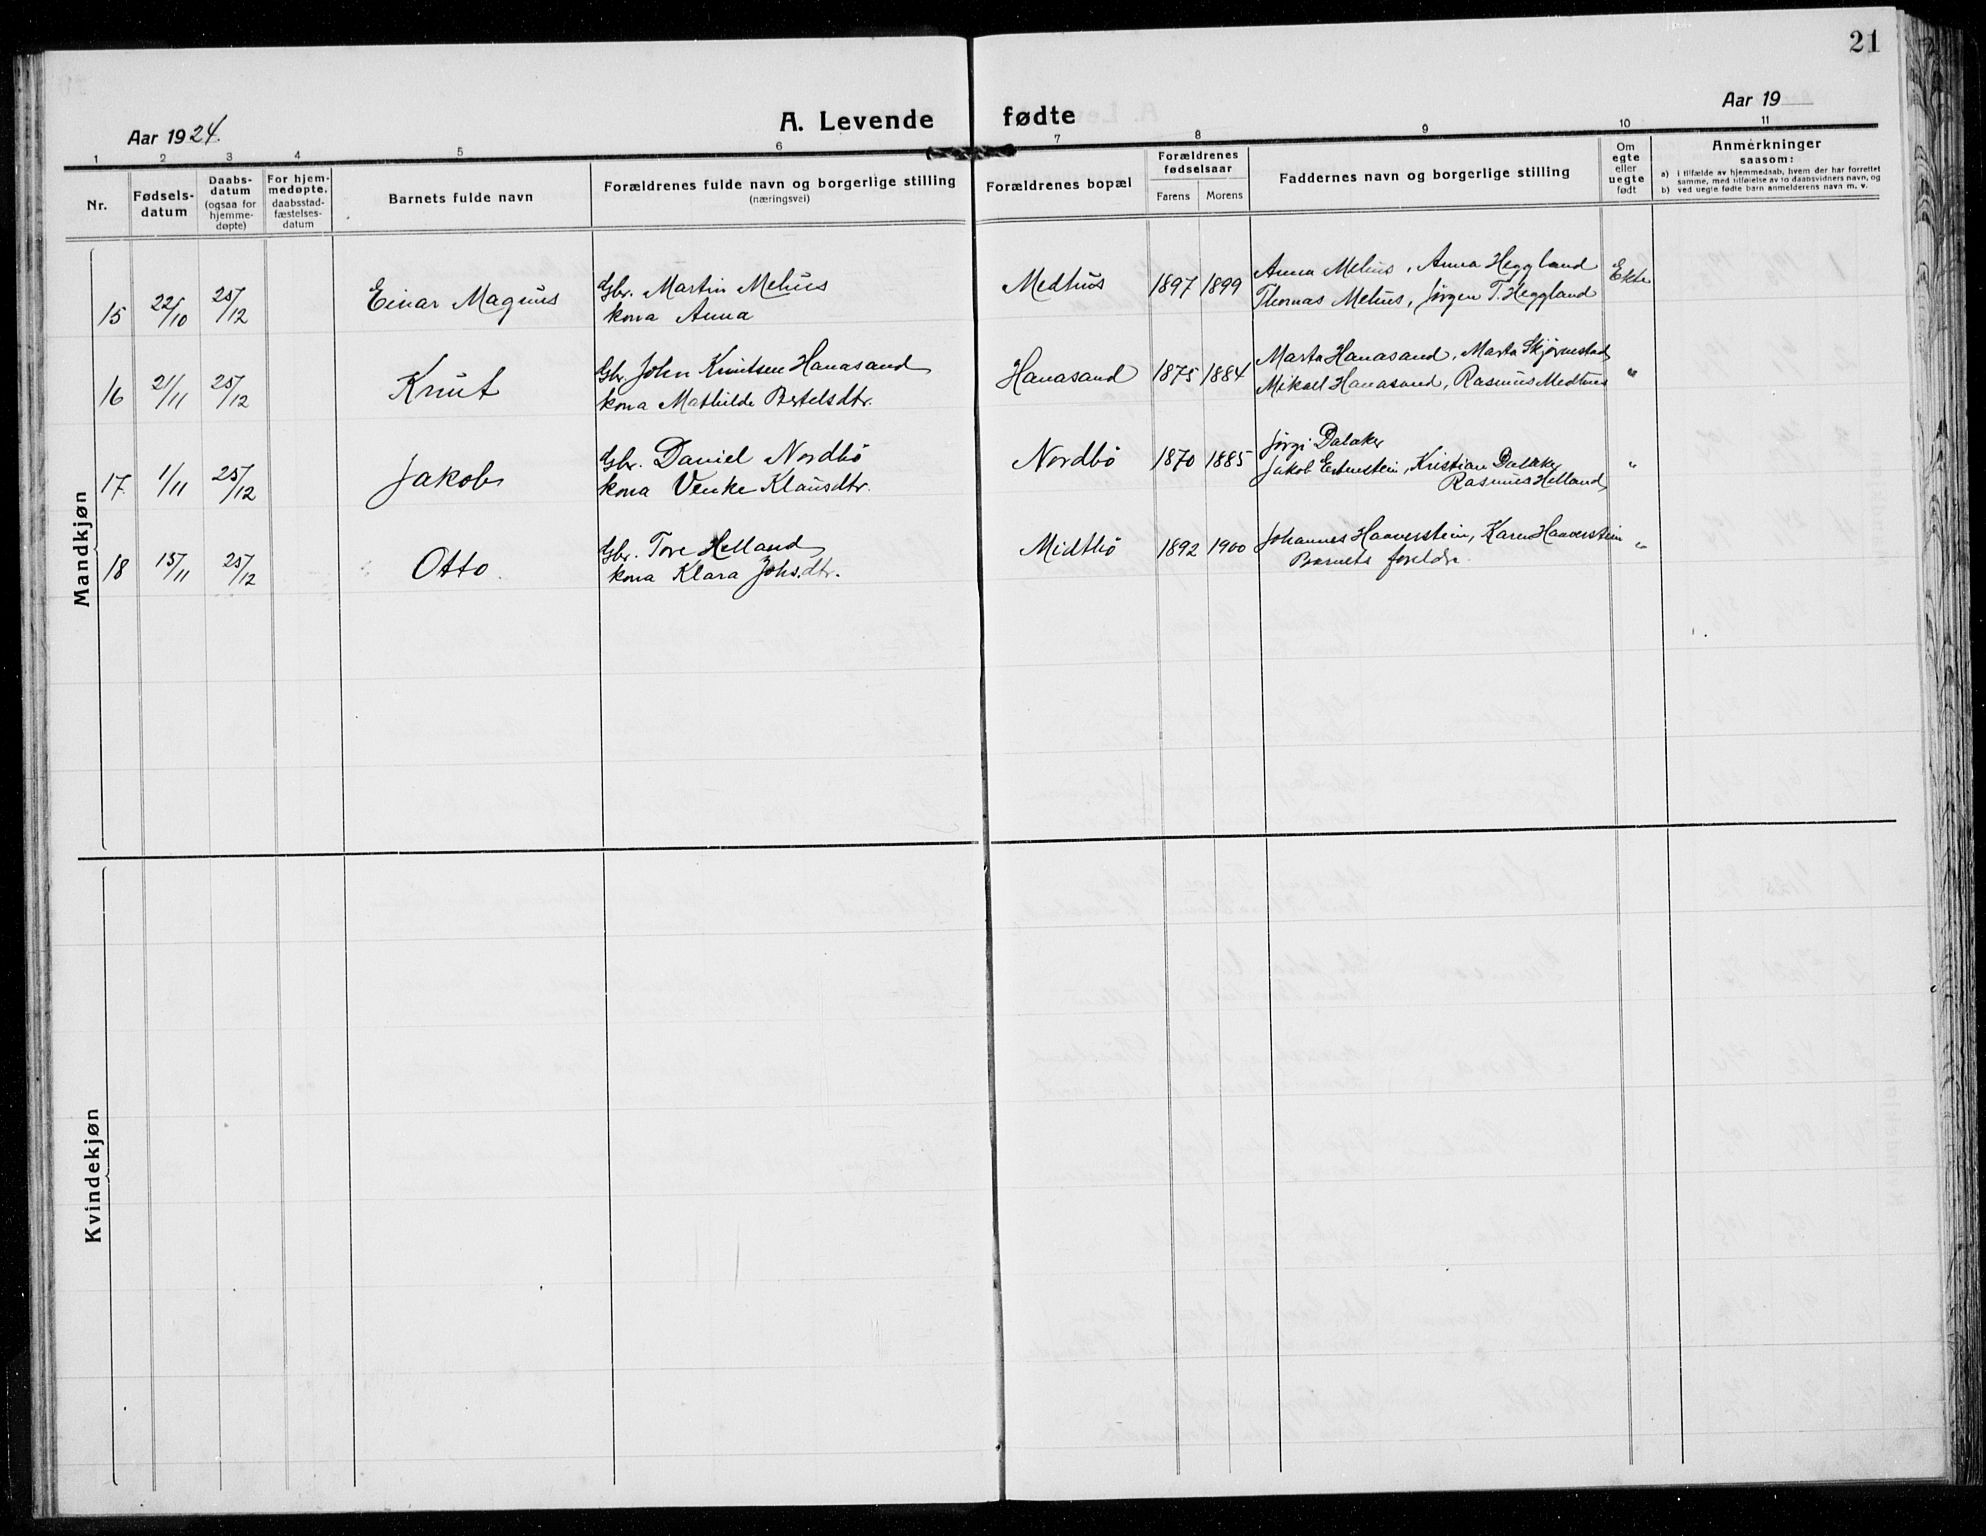 21
Aar 1924.
A. Levende fødte
Aar 19
1 2 3 4 5 6 7 8 9 10 11
Nr.
Fødsels-
datum
Daabs-
datum
(ogsaa for
hjemme-
døpte)
For hjem-
medøpte,
daabsstad-
fæstelses-
datum
Barnets fulde navn
Forældrenes fulde navn og borgerlige stilling
(næringsvei)
Forældrenes bopæl
Forældrenes
fødselsaar
Farens Morens
Faddernes navn og borgerlige stilling
Om
egte
eller
uegte
født
Anmerkninger
saasom:
a) i tilfælde av hjemmedaab, hvem der har forrettet
samme, med tilføielse av to daabsvidners navn, og
b) ved uegte fødte barn anmelderens navn m. v.
Mandkjøn
15 22/10 25/12 Einar Magnus
Gbr. Martin Mehus
kona Anna
Medhus 1897 1899
Anna Mehus, Anna Heggland
Thomas Mehus, Jørgen T. Heggland
Ekte
16 21/11 25/12 Knut
Gbr. John Knutsen Hanasand
kona Mathilde Bertelsdtr.
Hanasand 1875 1884
Marta Hanasand, Marta Skjørnestad
Mikael Hanasand, Rasmus Medhus
"
17. 1/11 25/12 Jakob
Gbr. Daniel Nordbö
kona Venke Klausdtr.
Nordbö 1870 1885
Jørgi Dalaker
Jakob Ertenstein, Kristian Dalaker
Rasmus Helland
"
18 15/11 25/12 Otto.
Gbr. Tore Helland
kona Klara Johs.dtr.
Midtbö 1892 1900
Johannes Haaverstein, Karen Haaverstein
Barnets foreldre.
"
Kvindekjøn